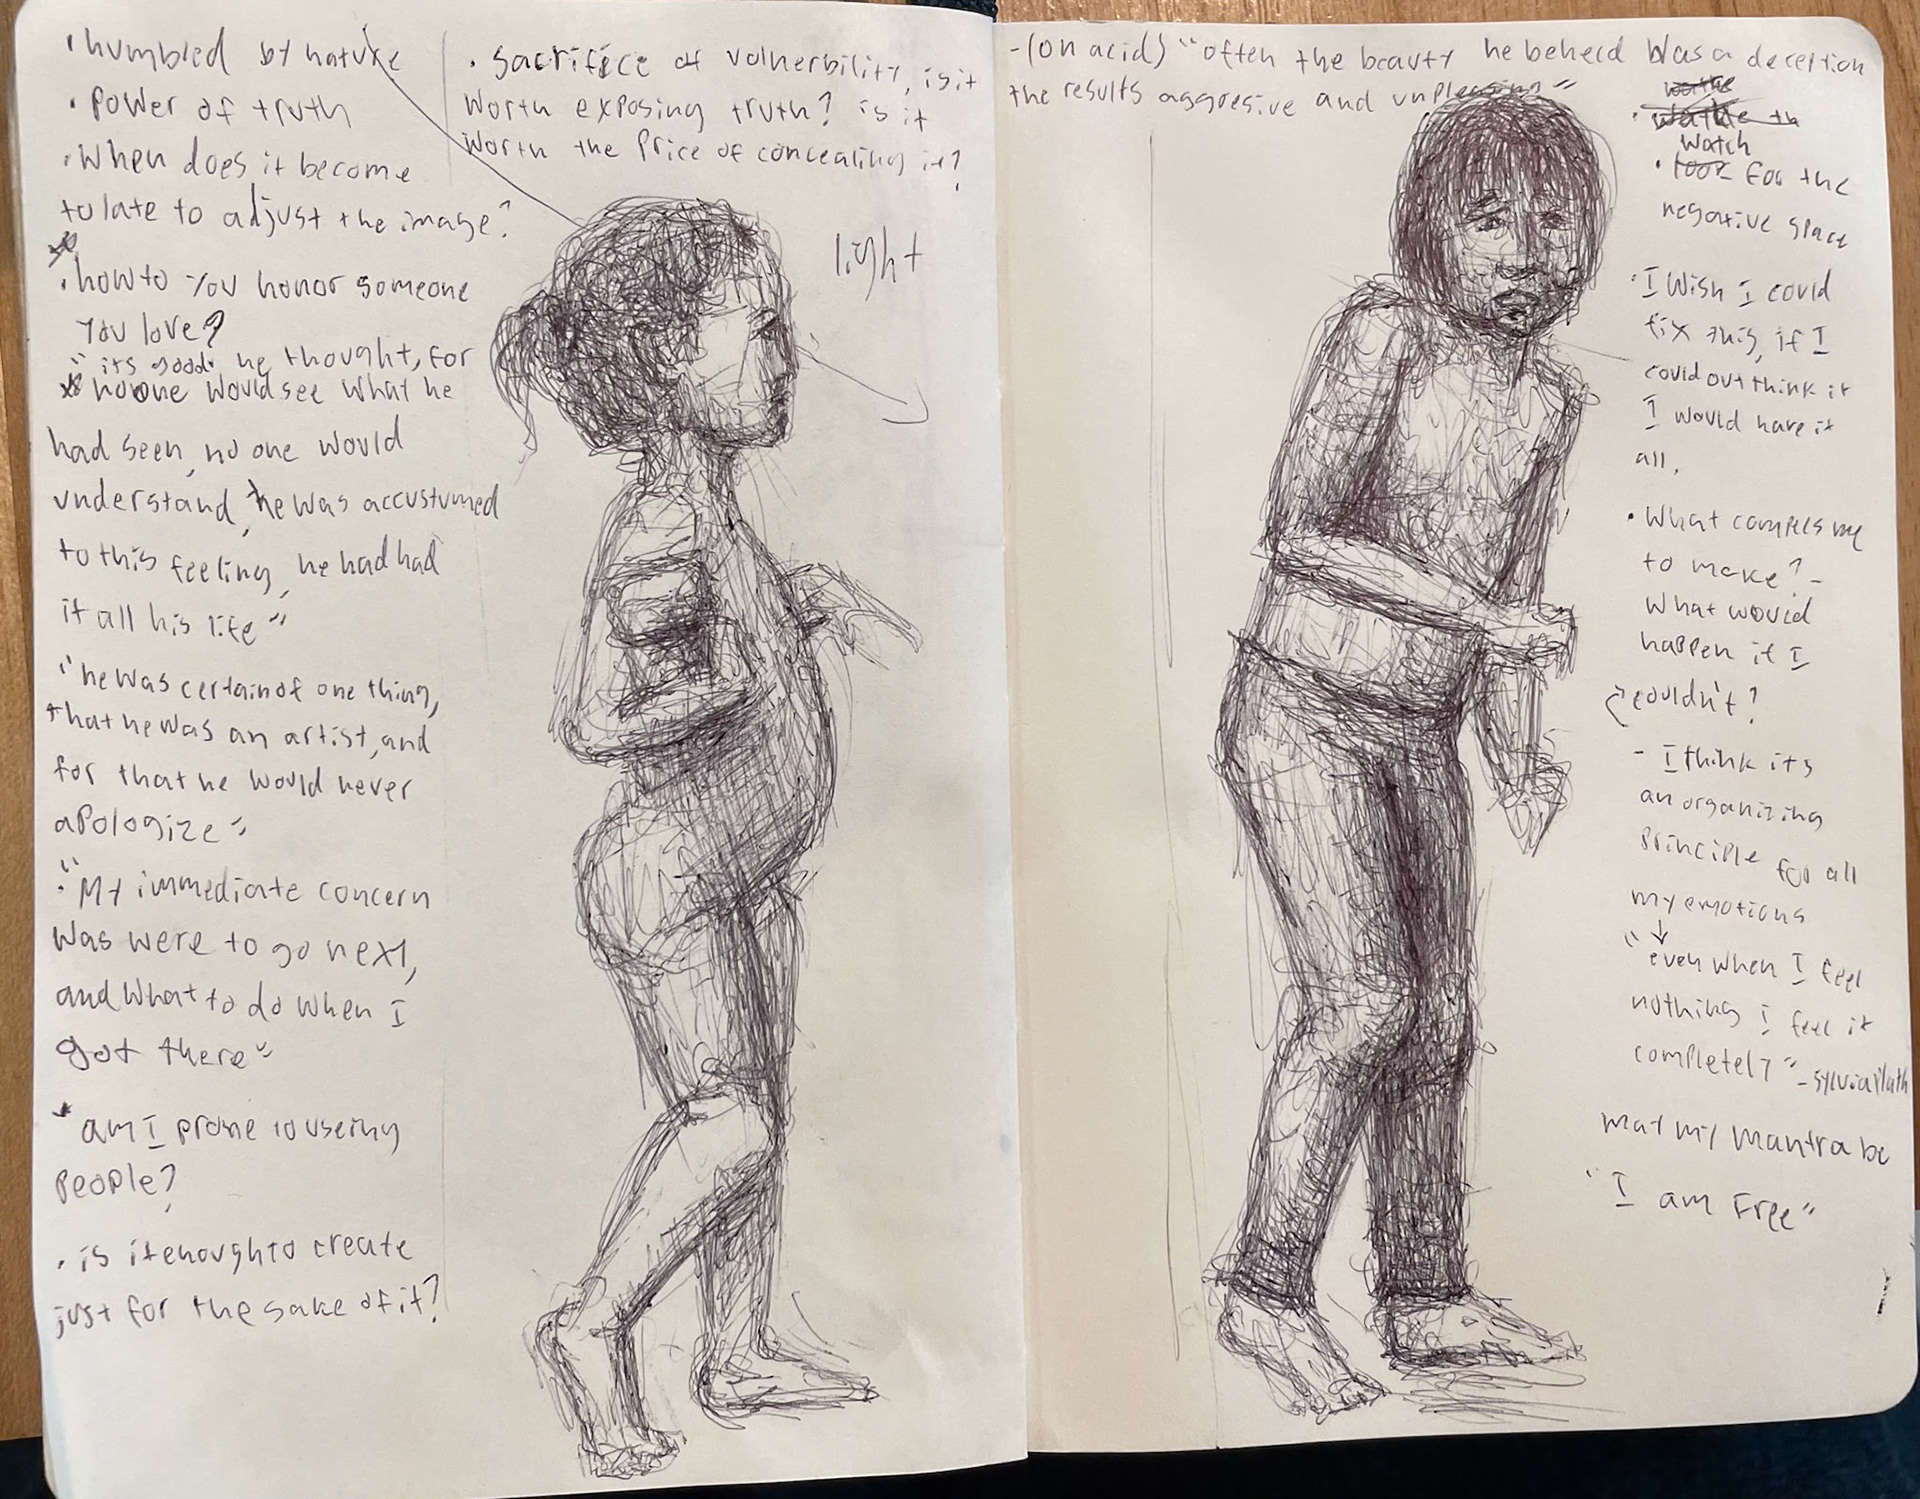 • humbled by nature
• Power of truth
• When does it become
to late to adjust the image?
• how to you honor someone
you love?
"its good. he thought, for
no one would see what he
had seen, no one would
understand, he was accustumed
to this feeling, he had had
it all his life"
"he was certain of one thing,
that he was an artist, and
for that he would never
apologize"
• "My immediate concern
was were to go next,
and what to do when I
got there"
am I prone to useing
people?
• is it enough to create
just for the sake of it?
• sacrifice of vulnerbility, is it
worth exposing truth? is it
worth the price of concealing it?
light
- (on acid) "often the beauty he beheld was a deception
the results aggresive and unpleasing"
Watch
• look for the
negative space
• I wish I could
fix this, if I
could out think it
I would have it
all.
• What compels me
to make? -
What would
happen if I
couldn't?
- I think its
an organizing
principle for all
my emotions
"even when I feel
nothing I feel it
completely" - sylvia Plath
may my mantra be
"I am Free"